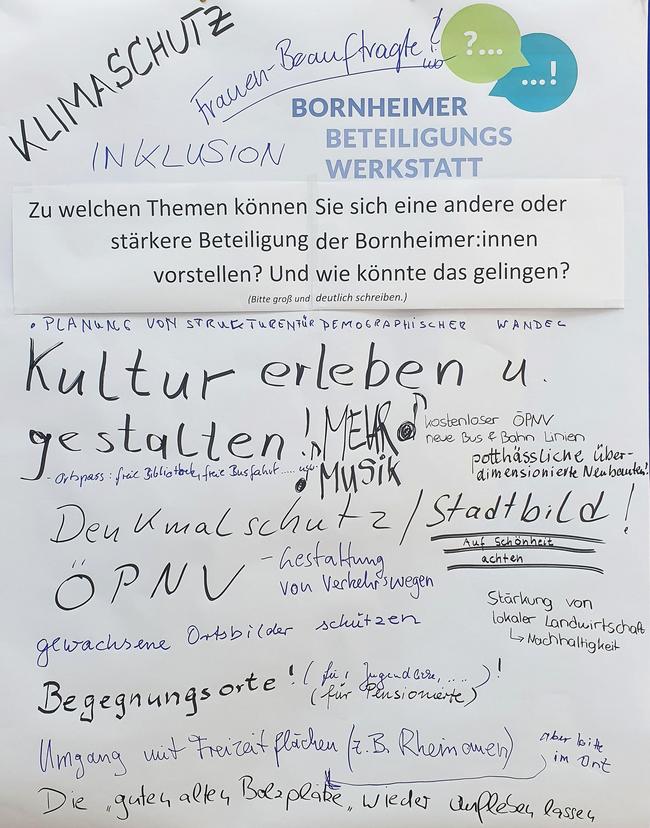 KLIMASCHUTZ
Frauen-Beauftragte!
wo
?...
...!
BORNHEIMER
BETEILIGUNGS
WERKSTATT
INKLUSION
Zu welchen Themen können Sie sich eine andere oder
stärkere Beteiligung der Bornheimer:innen
vorstellen? Und wie könnte das gelingen?
(Bitte groß und deutlich schreiben.)
• PLANUNG VON STRUKTUREN FÜR DEMOGRAPHISCHER WANDEL
Kultur erleben u.
gestalten!
MEHR
MUSIK
kostenloser ÖPNV
neue Bus & Bahn Linien
potthässliche über-
dimensionierte Neubauten!
- Ortspass: freie Bibliothek, freie Busfahrt ..... usw.
Denkmalschutz / Stadtbild!
Auf Schönheit
achten
ÖPNV
- Gestaltung
von Verkehrswegen
Stärkung von
lokaler Landwirtschaft
↳ Nachhaltigkeit
gewachsene Ortsbilder schützen
Begegnungsorte! (für Jugendliche, ....)!
(für Pensionierte)
Umgang mit Freizeitflächen (z.B. Rheinauen)
aber bitte
im Ort
Die „guten alten Bolzplätze„ wieder aufleben lassen